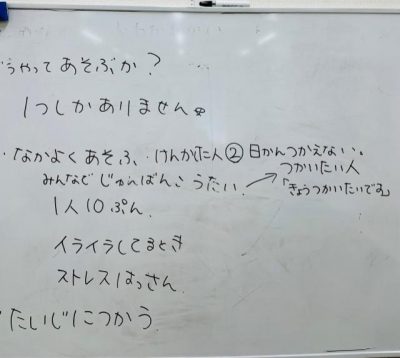 うやってあそぶか?
1つしかありません
・なかよくあそぶ・けんかした人②日かんつかえない。
みんなで じゃんばんこうたい → つかいたい人「きょうつかいたいです」
1人10ぷん
イライラしてるとき
ストレスはっさん
たいじにつかう